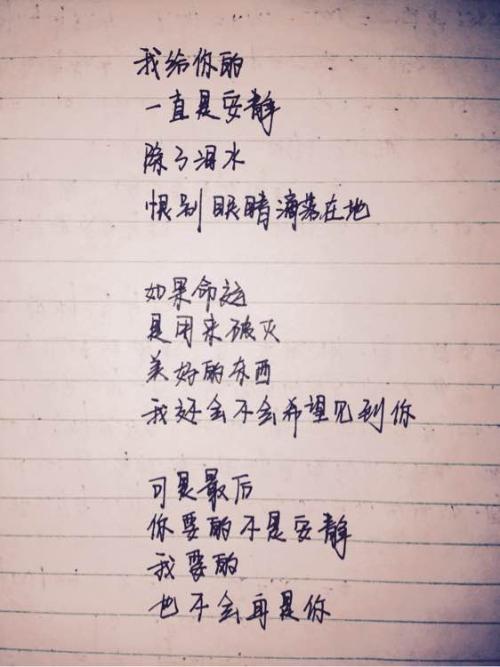 我给你的
一直是安静
除了泪水
恨别眼睛滴落在地
如果命运
是用来破灭
美好的东西
我还会不会希望见到你
可是最后
你要的不是安静
我要的
也不会再是你